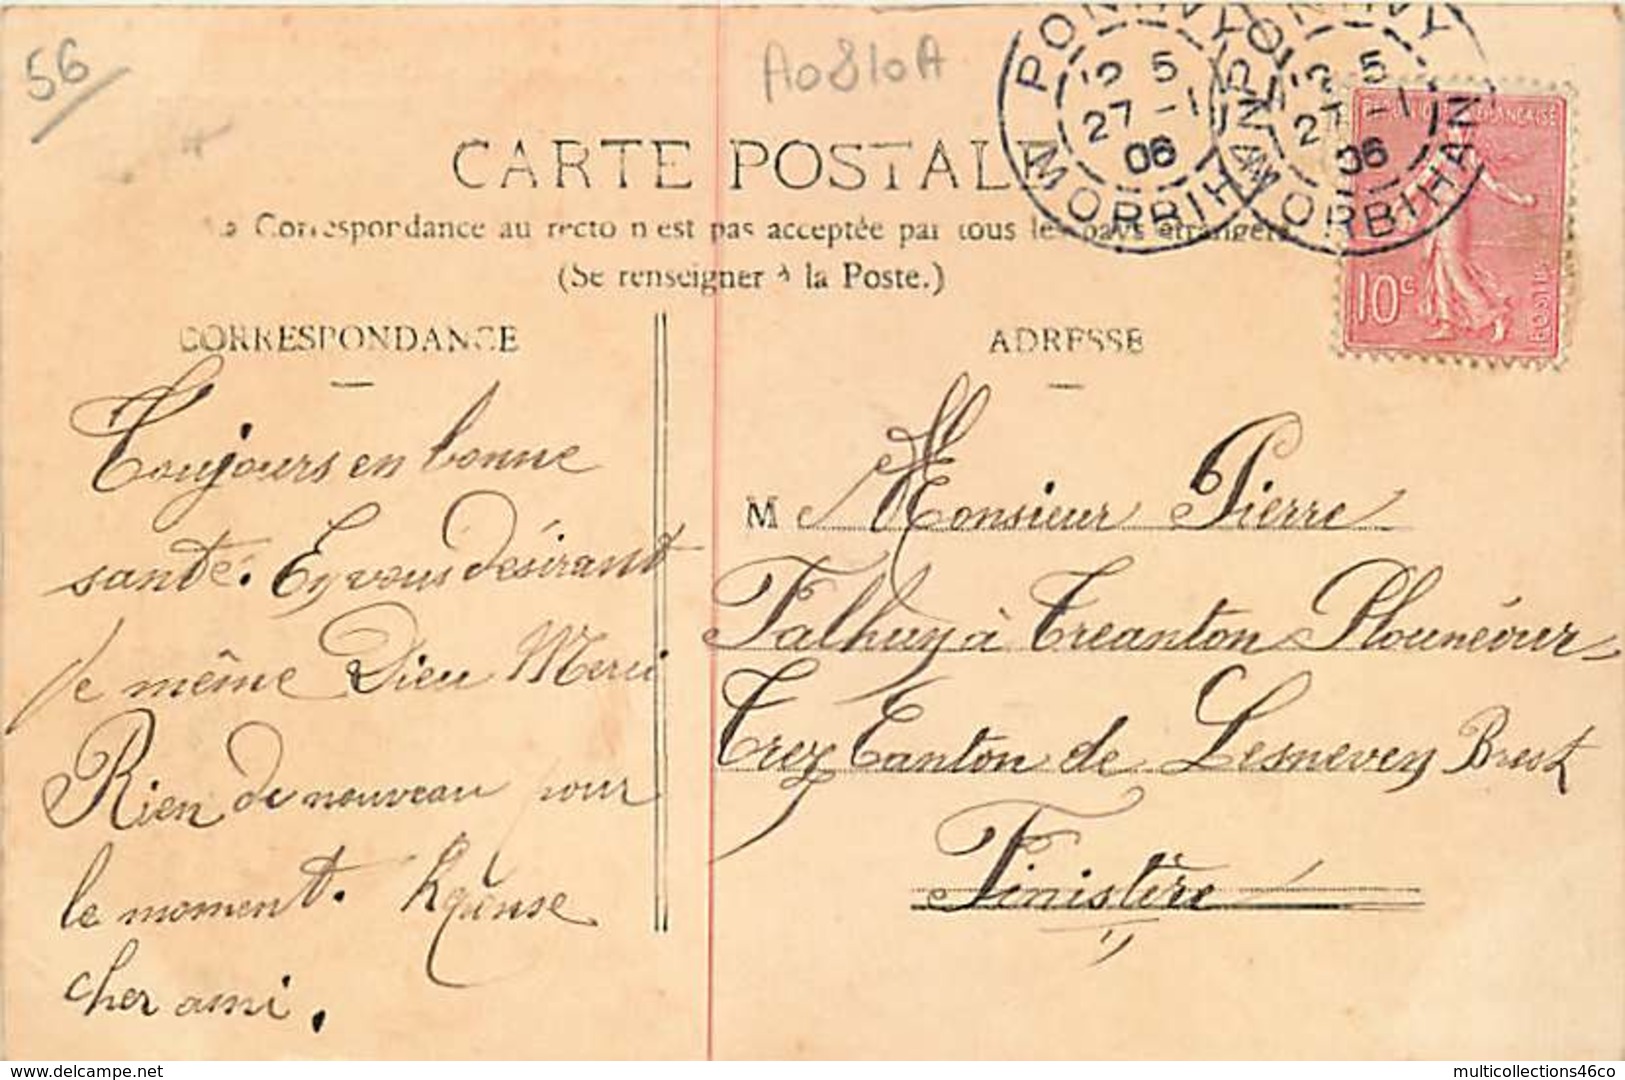 56
A0810A
PONTIVY
12 5
27 - 1
06
MORBIHAN
PONTIVY
12 5
27 - 1
06
MORBIHAN
REPUBLIQUE FRANÇAISE
10c
POSTES
CARTE POSTALE
La Correspondance au recto n'est pas acceptée par tous les pays étrangers.
(Se renseigner à la Poste.)
CORRESPONDANCE
Toujours en bonne
santé. En vous désirant
le même Dieu Merci
Rien de nouveau pour
le moment.
cher ami.
ADRESSE
M Monsieur Pierre
Falhun à Treanton Plounéour-
Trez Canton de Lesneven Brest
Finistère
www.delcampe.net
multicollections46co